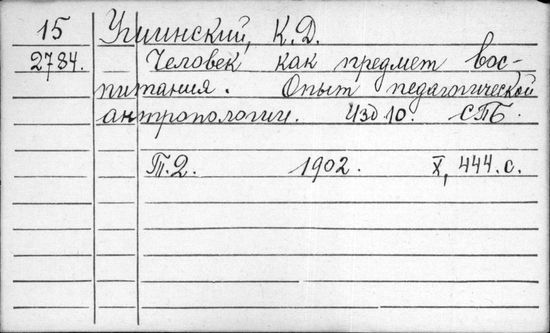 15 Ушинский, К.Д.
2784. Человек как предмет вос-
питания. Опыт педагогической
антропологии. Изд 10. СПБ.
Т.2. 1902. X, 444. с.